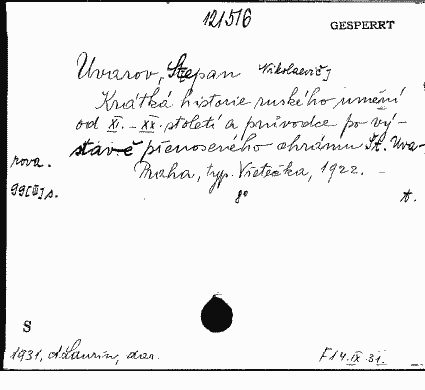 121516
GESPERRT
Uvarov, Stepan Nikolaevič]
Krátká historie ruského umění
od XI. - XX. století a průvodce po vý-
stavě přenoseného chrámu St. Uva-
rova.
Praha, typ. Vietečka, 1922. -
99[III] s. 8° t.
S
1931, A. Laurin, dar. F 14. IX. 31.